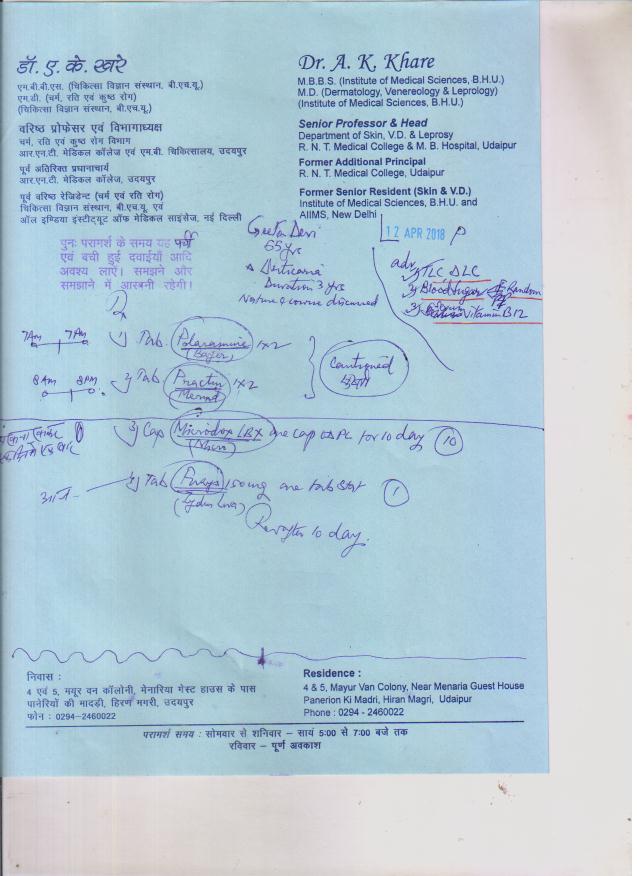 डॉ. ए. के. खरे
एम.बी.बी.एस. (चिकित्सा विज्ञान संस्थान, बी.एच.यू.)
एम.डी. (चर्म, रति एवं कुष्ठ रोग)
(चिकित्सा विज्ञान संस्थान, बी.एच.यू.)
वरिष्ठ प्रोफेसर एवं विभागाध्यक्ष
चर्म, रति एवं कुष्ठ रोग विभाग
आर.एन.टी. मेडिकल कॉलेज एवं एम.बी. चिकित्सालय, उदयपुर
पूर्व अतिरिक्त प्रधानाचार्य
आर.एन.टी. मेडिकल कॉलेज, उदयपुर
पूर्व वरिष्ठ रेजिडेन्ट (चर्म एवं रति रोग)
चिकित्सा विज्ञान संस्थान, बी.एच.यू. एवं
ऑल इण्डिया इंस्टीट्यूट ऑफ मेडिकल साइंसेज, नई दिल्ली
Dr. A. K. Khare
M.B.B.S. (Institute of Medical Sciences, B.H.U.)
M.D. (Dermatology, Venereology & Leprology)
(Institute of Medical Sciences, B.H.U.)
Senior Professor & Head
Department of Skin, V.D. & Leprosy
R. N. T. Medical College & M. B. Hospital, Udaipur
Former Additional Principal
R. N. T. Medical College, Udaipur
Former Senior Resident (Skin & V.D.)
Institute of Medical Sciences, B.H.U. and
AIIMS, New Delhi
12 APR 2018
पुनः परामर्श के समय यह पर्ची
एवं बची हुई दवाईयाँ आदि
अवश्य लाएं। समझने और
समझाने में आसानी रहेगी।
Geeta Devi
55 yrs
Urticaria
Duration 3 yrs
Nature & course discussed
adv
1) TLC DLC
2) Blood Sugar Random
3) Vitamin B12
7AM 7PM 1) Tab. Polaramine 1x2
(Bayer)
8AM 8PM 2) Tab Practin 1x2
Merind
Cautioned
3) Cap Microdox LBX one cap PC for 10 day 10
(Micro)
4) Tab 150mg one tab stat 1
Rev after 10 day.
निवास :
4 एवं 5, मयूर वन कॉलोनी, मेनारिया गेस्ट हाउस के पास
पानेरियों की मादड़ी, हिरण मगरी, उदयपुर
फोन : 0294-2460022
Residence :
4 & 5, Mayur Van Colony, Near Menaria Guest House
Panerion Ki Madri, Hiran Magri, Udaipur
Phone : 0294 - 2460022
परामर्श समय : सोमवार से शनिवार – सायं 5:00 से 7:00 बजे तक
रविवार – पूर्ण अवकाश